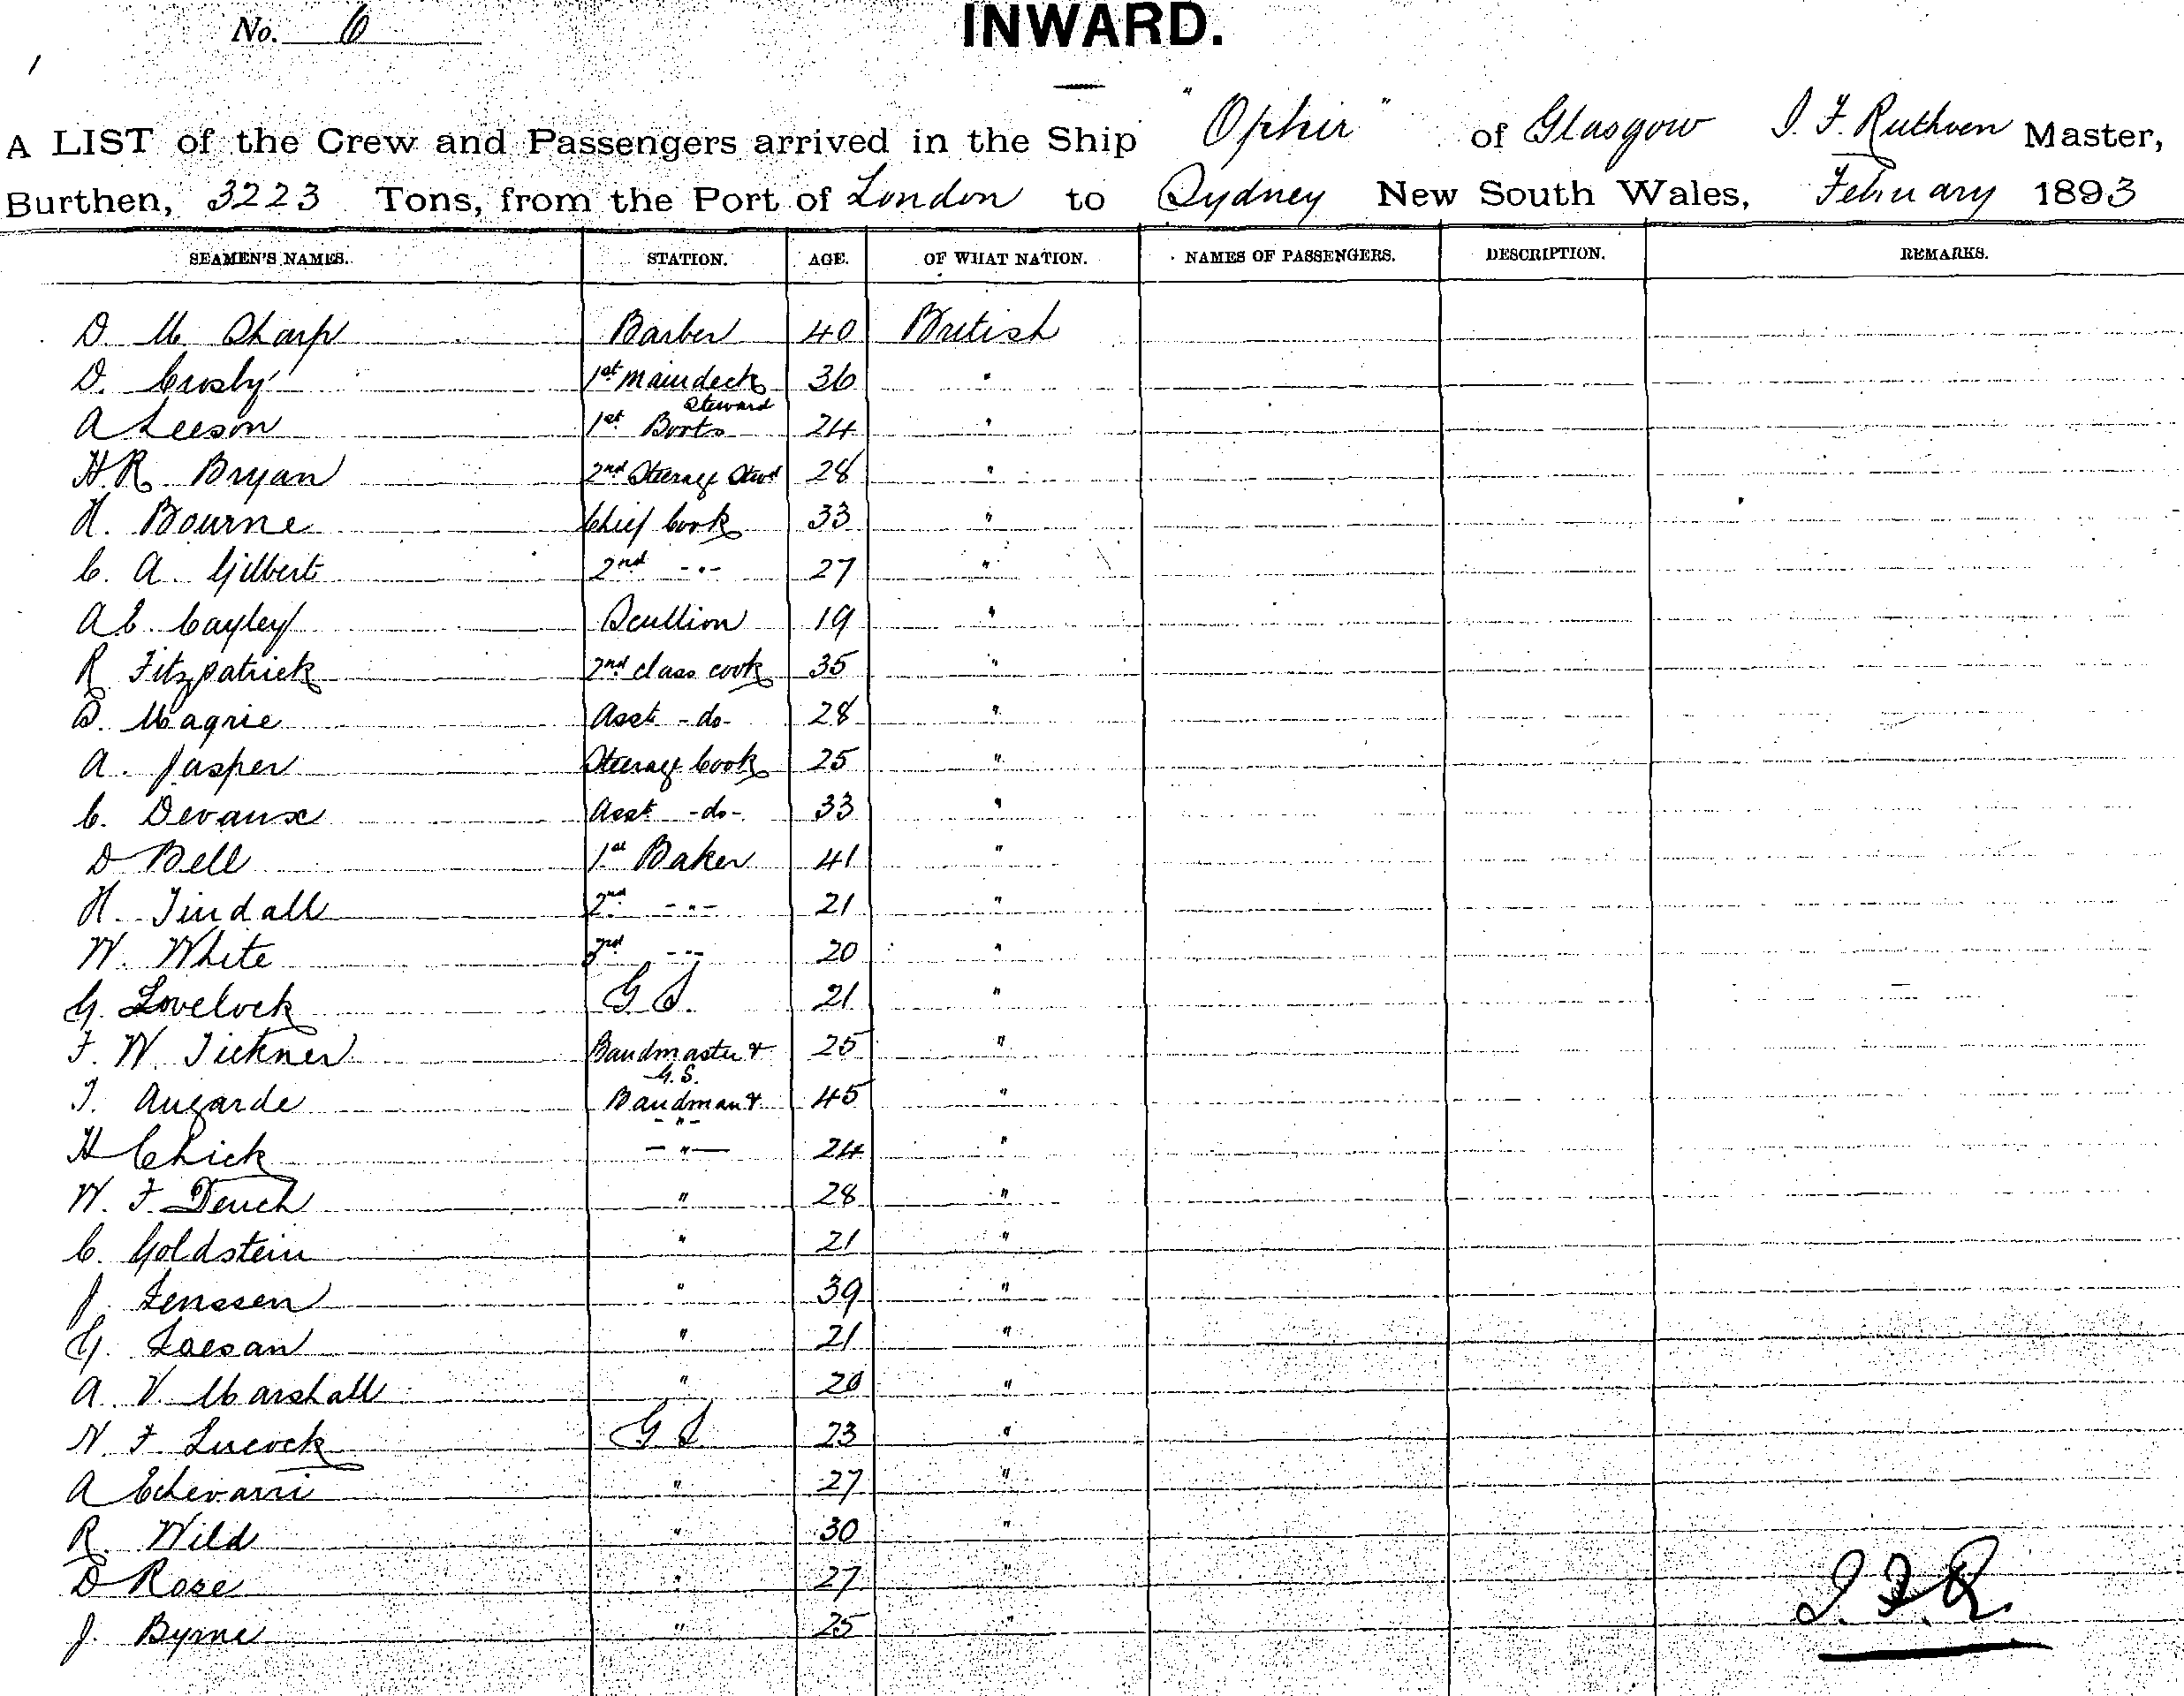 No. 6
INWARD.
A LIST of the Crew and Passengers arrived in the Ship "Ophir" of Glasgow J. F. Ruthven Master,
Burthen, 3223 Tons, from the Port of London to Sydney New South Wales, February 1893
SEAMEN'S NAMES. STATION. AGE. OF WHAT NATION. NAMES OF PASSENGERS. DESCRIPTION. REMARKS.
D. M. Sharp Barber 40 British
D. Crosby 1st Maindeck Steward 36 "
A Leeson 1st Boots 24 "
H. R. Bryan 2nd Steerage Stwd 28 "
H. Bourne Chief Cook 33 "
C. A. Gilbert 2nd -"- 27 "
A C. Cayley Scullion 19 "
R Fitzpatrick 2nd class cook 35 "
Magrie Asst -do- 28 "
A. Jasper Steerage Cook 25 "
C. Devaux Asst -do- 33 "
D Bell 1st Baker 41 "
H. Tindall 2nd -"- 21 "
W. White 3rd -"- 20 "
G. Lovelock G S. 21 "
F. W. Tickner Bandmaster & G.S. 25 "
T. Augarde Bandman & -"- 45 "
H Chick -"- 24 "
W. F. Dench " 28 "
C. Goldstein " 21 "
J. Jenssen " 39 "
G. " 21 "
A. V. Marshall " 20 "
N. F. Lucock G S 23 "
A Echevarri " 27 "
R. Wild " 30 "
D Rose " 27 "
J. Byrne " 25 "
J. F. R.